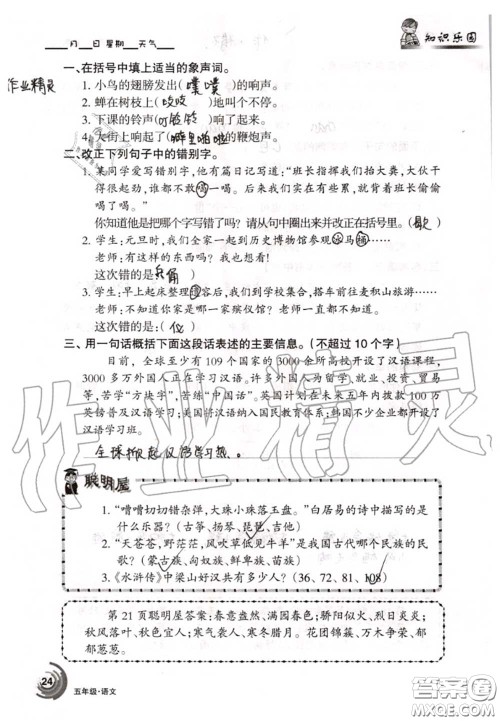 ___月___日 星期___天气___
知识乐园
一、在括号中填上适当的象声词。
作业精灵
1. 小鸟的翅膀发出（噗噗）的响声。
2. 蝉在树枝上（吱吱）地叫个不停。
3. 下课的铃声（叮铃铃）响了起来。
4. 大街上响起了（噼里啪啦）的鞭炮声。
二、改正下列句子中的错别字。
1. 某同学爱写错别字，他有篇日记写道：“班长指挥我们抬大粪，大伙干
得很起劲，谁都不敢喝一喝。后来我们实在累极了，就背着班长偷偷
喝了喝。”
你知道他是把哪个字写错了吗？请从句中圈出来并改正在括号里。（歇）
2. 学生：元旦时，我们全家一起到历史博物馆参观水马桶……
老师：有这样的东西吗？我也想看！
这次错的是（兵 俑）
3. 学生：早上起床整理殡容后，我们到学校集合，搭车前往麦积山旅游……
老师：不知道你家是哪一家殡仪馆？老师一直都不知道。
这次错的是：（仪）
三、用一句话概括下面这段话表述的主要信息。（不超过 10 个字）
目前，全球至少有 109 个国家的 3000 余所高校开设了汉语课程，
3000 多万外国人正在学习汉语。许多外国人为了就业、投资、贸易
等，苦学“方块字”，苦练“中国话”。英国计划在未来五年内拨款 100 万
英镑普及汉语学习；美国把汉语纳入国民教育体系；韩国不少企业都开设了
汉语学习班。
全球掀起汉语学习热。
作业精灵
聪明屋
1. “嘈嘈切切错杂弹，大珠小珠落玉盘。”白居易的诗中描写的是
什么乐器？（古筝、扬琴、琵琶、吉他）
2. “天苍苍，野茫茫，风吹草低见牛羊”是我国古代哪个民族的民
歌？（蒙古族、匈奴族、鲜卑族、苗族）
3. 《水浒传》中梁山好汉共有多少人？（36、72、81、108）
第 21 页聪明屋答案：春意盎然、满园春色；骄阳似火、烈日炎炎；
秋风落叶、秋色宜人；寒气袭人、寒冬腊月。花团锦簇、万木争荣、郁
郁葱葱。
24
五年级·语文